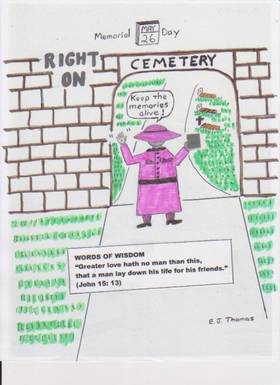 Memorial MAY 26 Day
RIGHT ON
CEMETERY
Keep the
memories
alive!
WORDS OF WISDOM
“Greater love hath no man than this,
that a man lay down his life for his friends.”
(John 15: 13)
E.J. Thomas